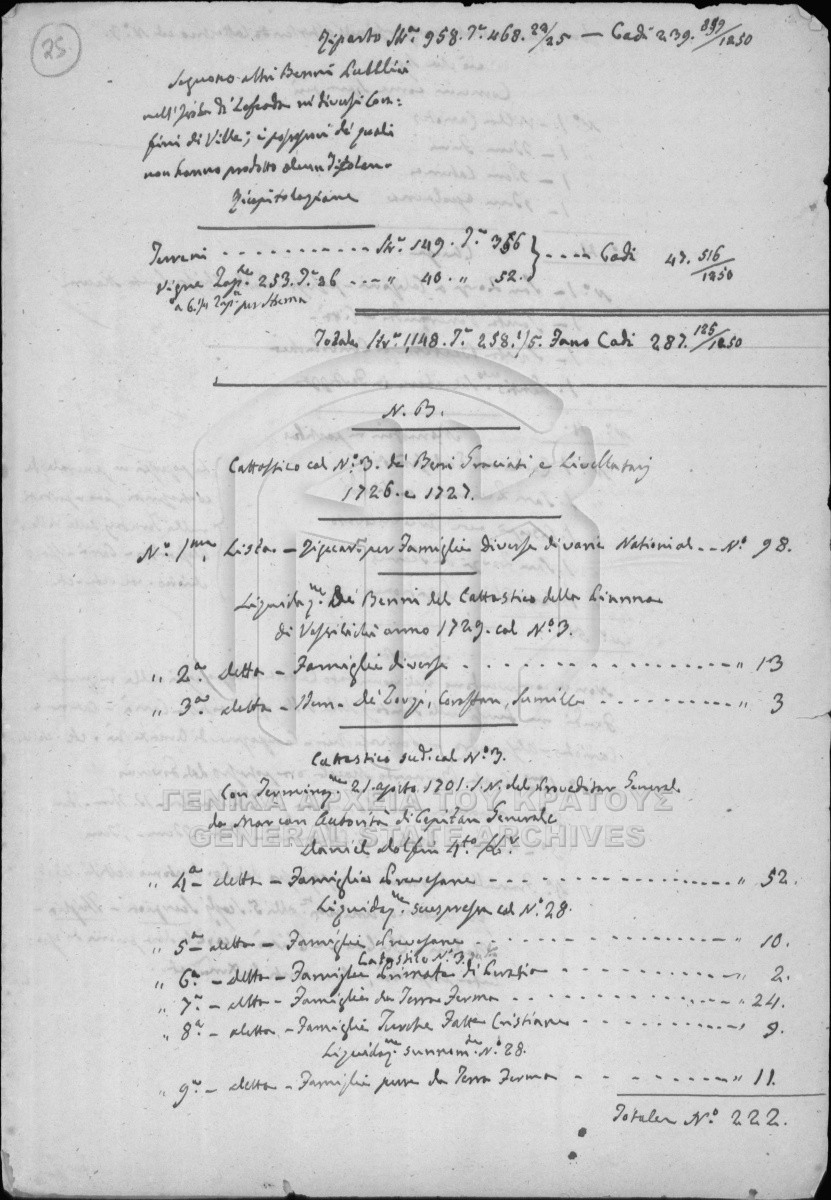 25.
Riporto Str. 958. T. 468. 22/25 — Cadi 239. 889/1250
Seguono altri Benni Pubblici
nell'Isola di Leffcada ne diversi Con=
fini di Villa; i possessori de quali
non hanno prodotto alcun Titolo.
Ricapitolazione
Terreni - - - - Str. 149. T. 356
Vigne Zap.ne 253. T. 26 - - " 40. " 52. - - - - Cadi 47. 516/1250
a 6.1/4 Zap.ne per Strema
Totale Str. 1148. T. 258. 1/5. Fano Cadi 287. 125/1250
N. B.
Cattastico col N.o 3. de' Beni Graciati, e Livellatarj
1726. e 1727.
N.o 1.ma Lista - Ricavati per Famiglie diverse di varie Nationi - - N.o 98.
Liquidaz.ne De' Benni del Cattastico della Piannae
di Vassilichi anno 1729. col N.o 3.
" 2.a detta - Famiglie diverse - - - - " 13
" 3.a detta - De Zorzi, - - - - " 3
Cattastico sud. col N.o 3.
Con Terminaz.ne 21. agosto 1701. S. N. del Proveditor General
da Mar con Autorità di Capitan Generale
Daniel Dolfin 4.to Kr.
" 4.a - detta - Famiglie Prevesane - - - - " 52.
Liquidaz.ne suespressa col N.o 28.
" 5.a - detta - Famiglie Prevesane - - - - " 10.
Catastico N.o 3.
" 6.a - detta - Famiglie - - - - " 2.
" 7.a - detta - Famiglie da Terra Ferma - - - - " 24.
" 8.a - detta - Famiglie Turche Fatte Cristiane - - - - " 9.
Liquidaz.ne sunnom.de N.o 28.
" 9.a - detta - Famiglie pure da Terra Ferma - - - - " 11.
Totale N.o 222.
ΓΕΝΙΚΑ ΑΡΧΕΙΑ ΤΟΥ ΚΡΑΤΟΥΣ
GENERAL STATE ARCHIVES